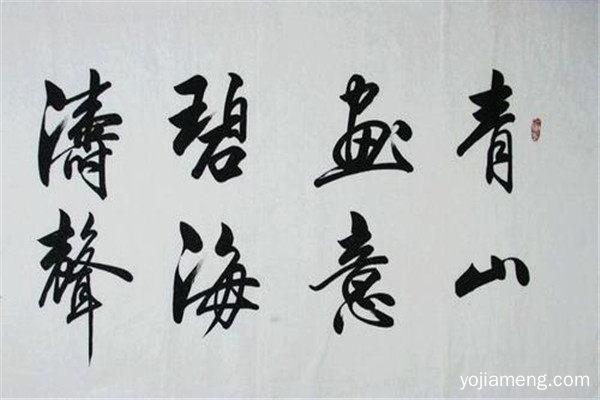 青山
画意
碧海
濤聲
yojiameng.com